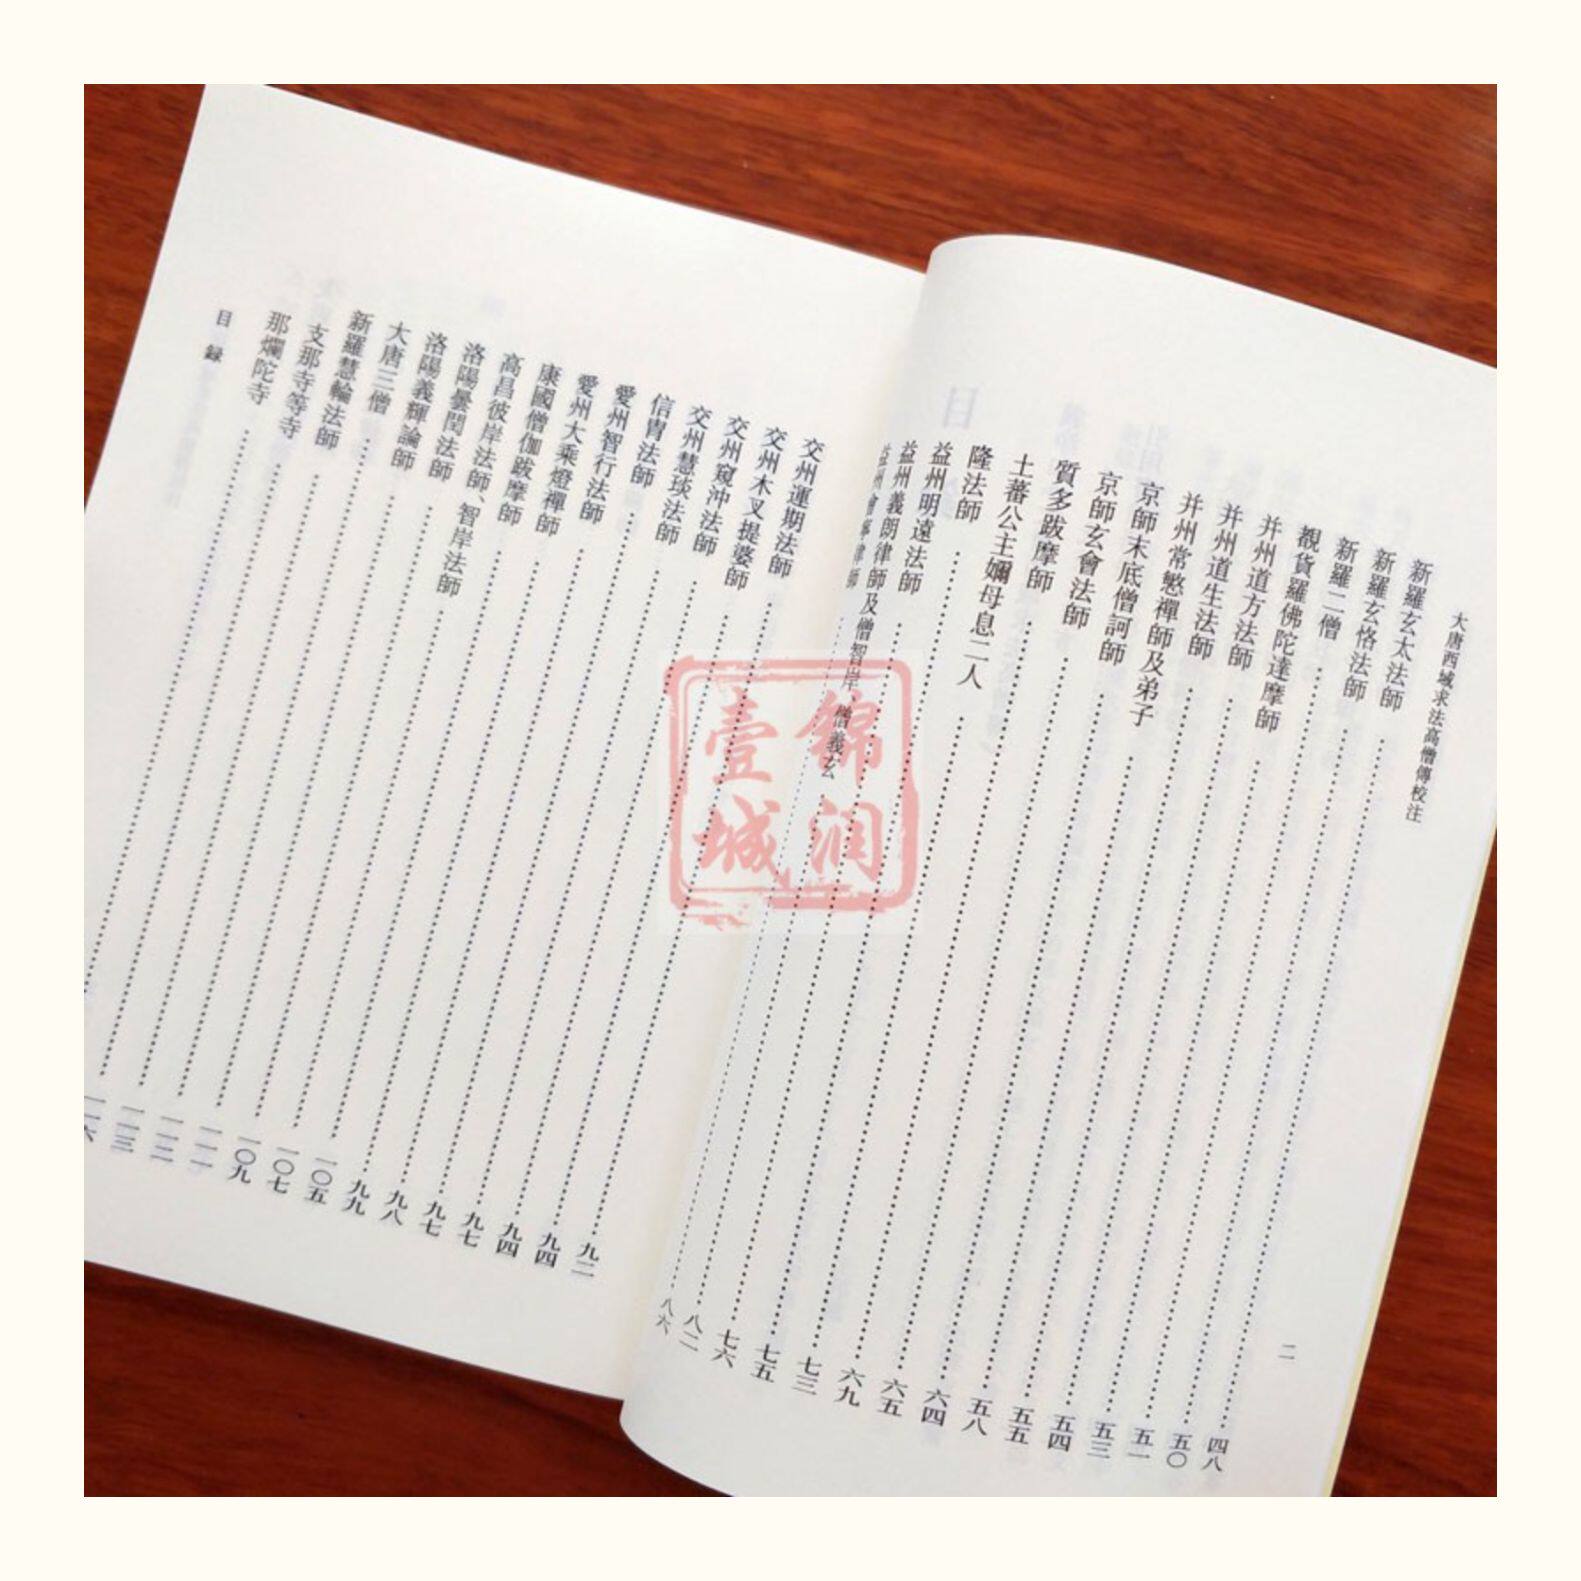 大唐西域求法高僧傳校注
二
新羅玄太法師……四八
新羅玄恪法師……五〇
新羅二僧……五一
覩貨羅佛陀達摩師……五三
并州道方法師……五四
并州道生法師……五五
并州常慜禪師及弟子……五八
京師末底僧訶師……六四
京師玄會法師……六五
質多跋摩師……六九
土蕃公主嬭母息二人……七三
隆法師……七五
益州明遠法師……七六
益州義朗律師及僧智岸、僧義玄……八二
益州會寧律師……八六
交州運期法師……九二
交州木叉提婆師……九四
交州窺沖法師……九四
交州慧琰法師……九七
信胄法師……九七
愛州智行法師……九八
愛州大乘燈禪師……九九
康國僧伽跋摩師……一〇五
高昌彼岸法師、智岸法師……一〇七
洛陽曇閏法師……一〇九
洛陽義輝論師……一一一
大唐三僧……一一二
新羅慧輪法師……一一三
支那寺等寺……一一六
那爛陀寺……
目錄
锦润
壹城